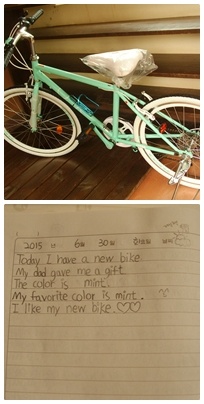 2015 년 6월 30일
Today I have a new bike.
My dad gave me a gift.
The color is mint.
My favorite color is mint.
I like my new bike.♡♡